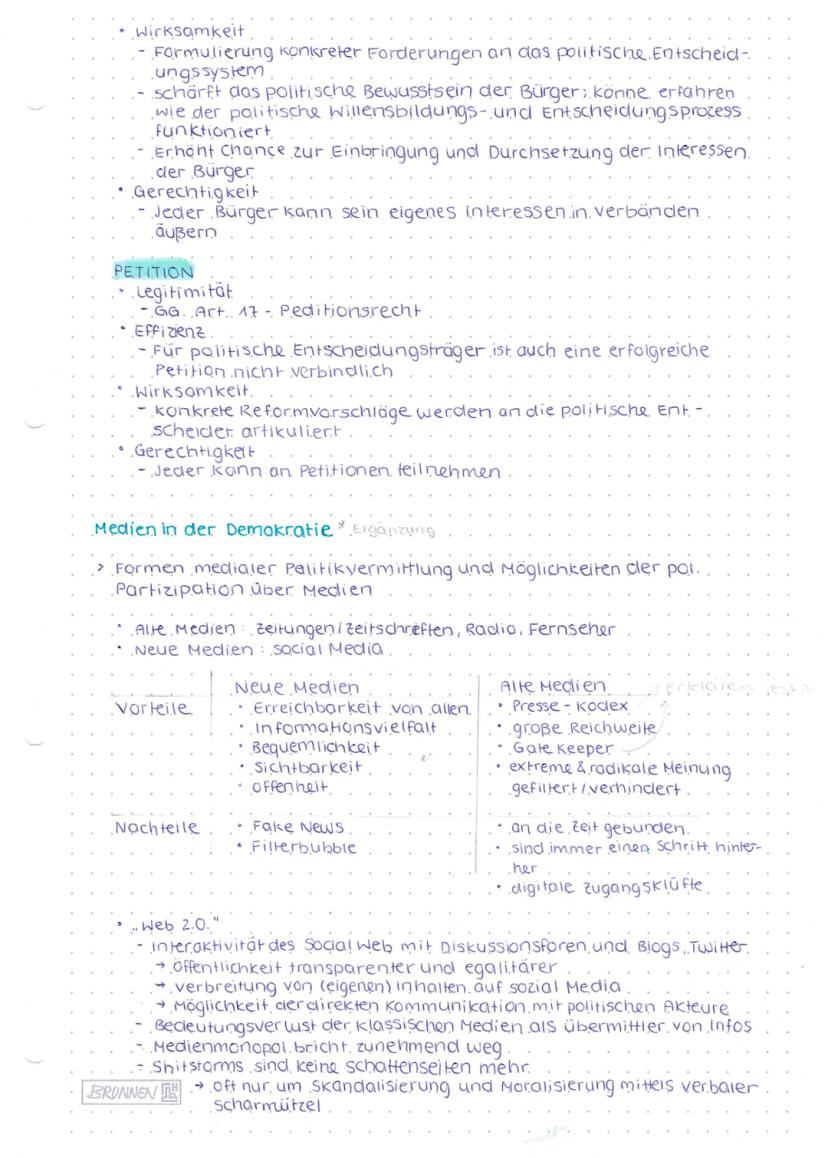 • Wirksamkeit
- Formulierung konkreter Forderungen an das politische Entscheid-
ungssystem
- schärft das politische Bewusstsein der Bürger; könne erfahren
wie der politische Willensbildungs- und Entscheidungsprozess
funktioniert
- Erhöht Chance zur Einbringung und Durchsetzung der Interessen
der Bürger
• Gerechtigkeit
- Jeder Bürger kann sein eigenes Interessen in Verbänden
äußern
PETITION
• Legitimität
- GG Art. 17 - Peditionsrecht
• Effizienz
- Für politische Entscheidungsträger ist auch eine erfolgreiche
Petition nicht verbindlich
• Wirksamkeit
- konkrete Reformvorschläge werden an die politische Ent-
scheider artikuliert
• Gerechtigkeit
- Jeder kann an Petitionen teilnehmen
Medien in der Demokratie * Ergänzung
> Formen medialer Politikvermittlung und Möglichkeiten der pol.
Partizipation über Medien
• Alte Medien: Zeitungen/Zeitschreften, Radio, Fernseher
• Neue Medien: social Media
Neue Medien Alte Medien
Vorteile • Erreichbarkeit von allen • Presse-Kodex
• Informationsvielfalt • große Reichweite
• Bequemlichkeit • Gate Keeper
• Sichtbarkeit • extreme & radikale Meinung
• Offenheit gefiltert/verhindert
Nachteile • Fake News • an die Zeit gebunden
• Filterbubble • sind immer einen Schritt hinter-
her
• digitale Zugangsklüfte
• „Web 2.0."
- Interaktivität des Social Web mit Diskussionsforen und Blogs, Twitter
→ Öffentlichkeit transparenter und egalitärer
→ Verbreitung von (eigenen) Inhalten auf sozial Media
→ Möglichkeit der direkten Kommunikation mit politischen Akteure
- Bedeutungsverlust der klassischen Medien als Übermittler von Infos
- Medienmonopol bricht zunehmend weg
- Shitstorms sind keine Schattenseiten mehr
BRUNNEN → oft nur um Skandalisierung und Moralisierung mittels verbaler
Scharmützel